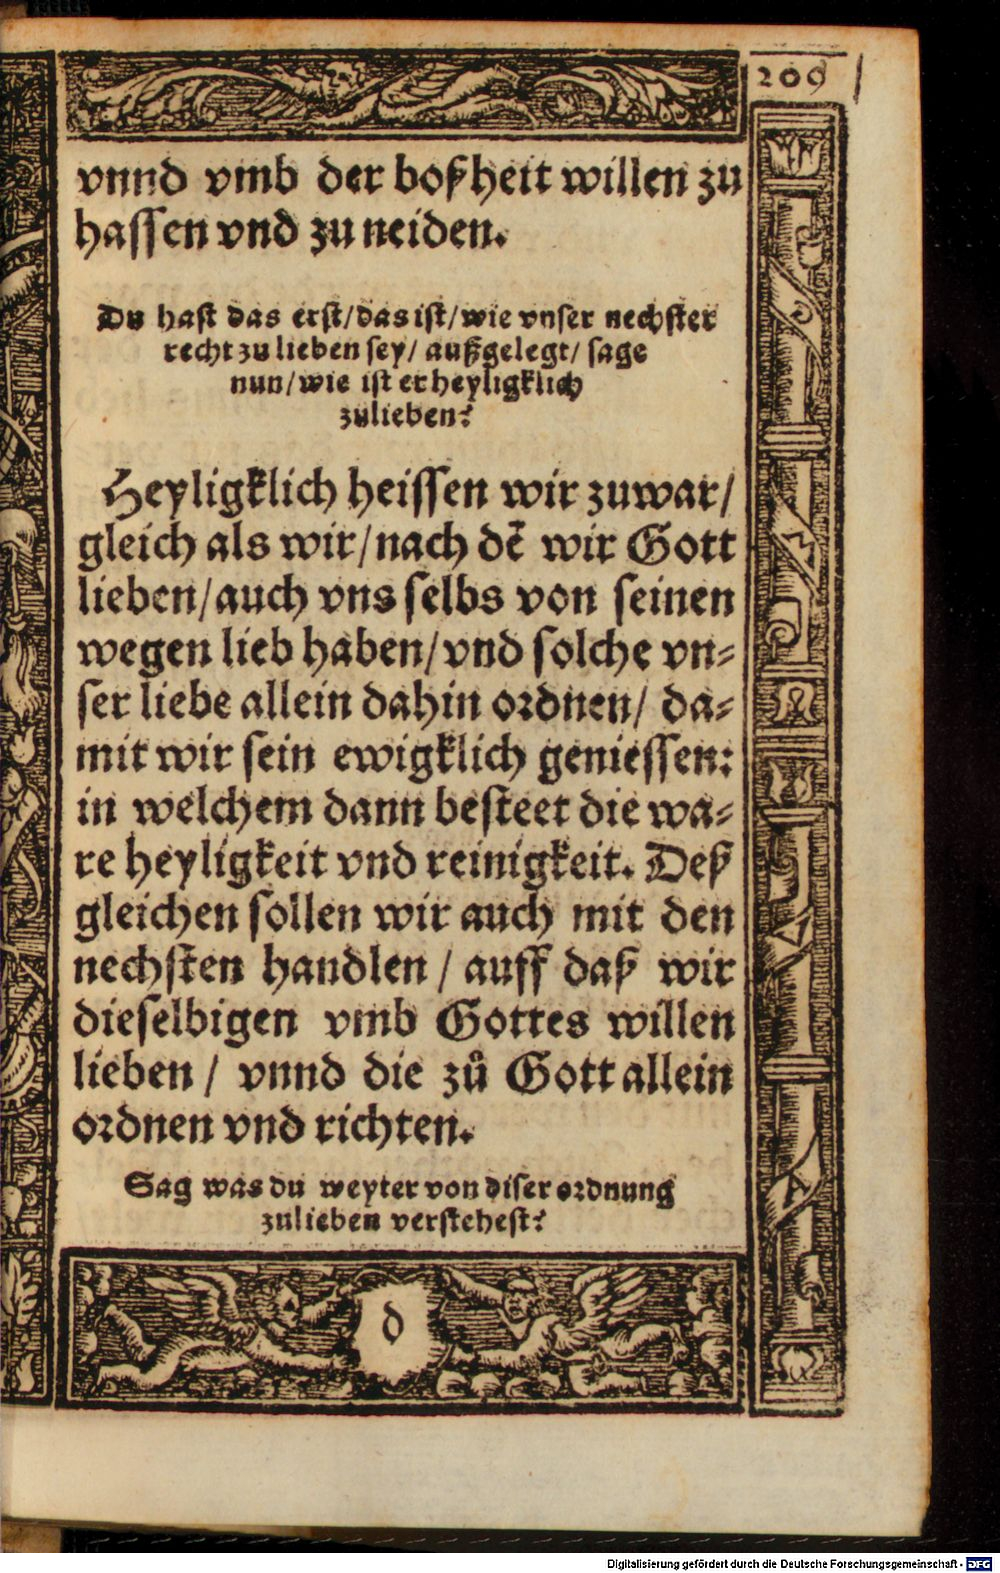 209
vnnd vmb der boßheit willen zu
hassen vnd zu neiden.
Du hast das erst/das ist/wie vnser nechster
recht zu lieben sey/ außgelegt/ sage
nun/wie ist er heyligklich
zulieben?
Heyligklich heissen wir zuwar/
gleich als wir/nach dẽ wir Gott
lieben/auch vns selbs von seinen
wegen lieb haben/vnd solche vn⸗
ser liebe allein dahin ordnen/ da⸗
mit wir sein ewigklich geniessen:
in welchem dann besteet die wa⸗
re heyligkeit vnd reinigkeit. Deß
gleichen sollen wir auch mit den
nechsten handlen / auff daß wir
dieselbigen vmb Gottes willen
lieben / vnnd die zů Gott allein
ordnen vnd richten.
Sag was du weyter von diser ordnung
zulieben verstehest?
d
Digitalisierung gefördert durch die Deutsche Forschungsgemeinschaft - DFG